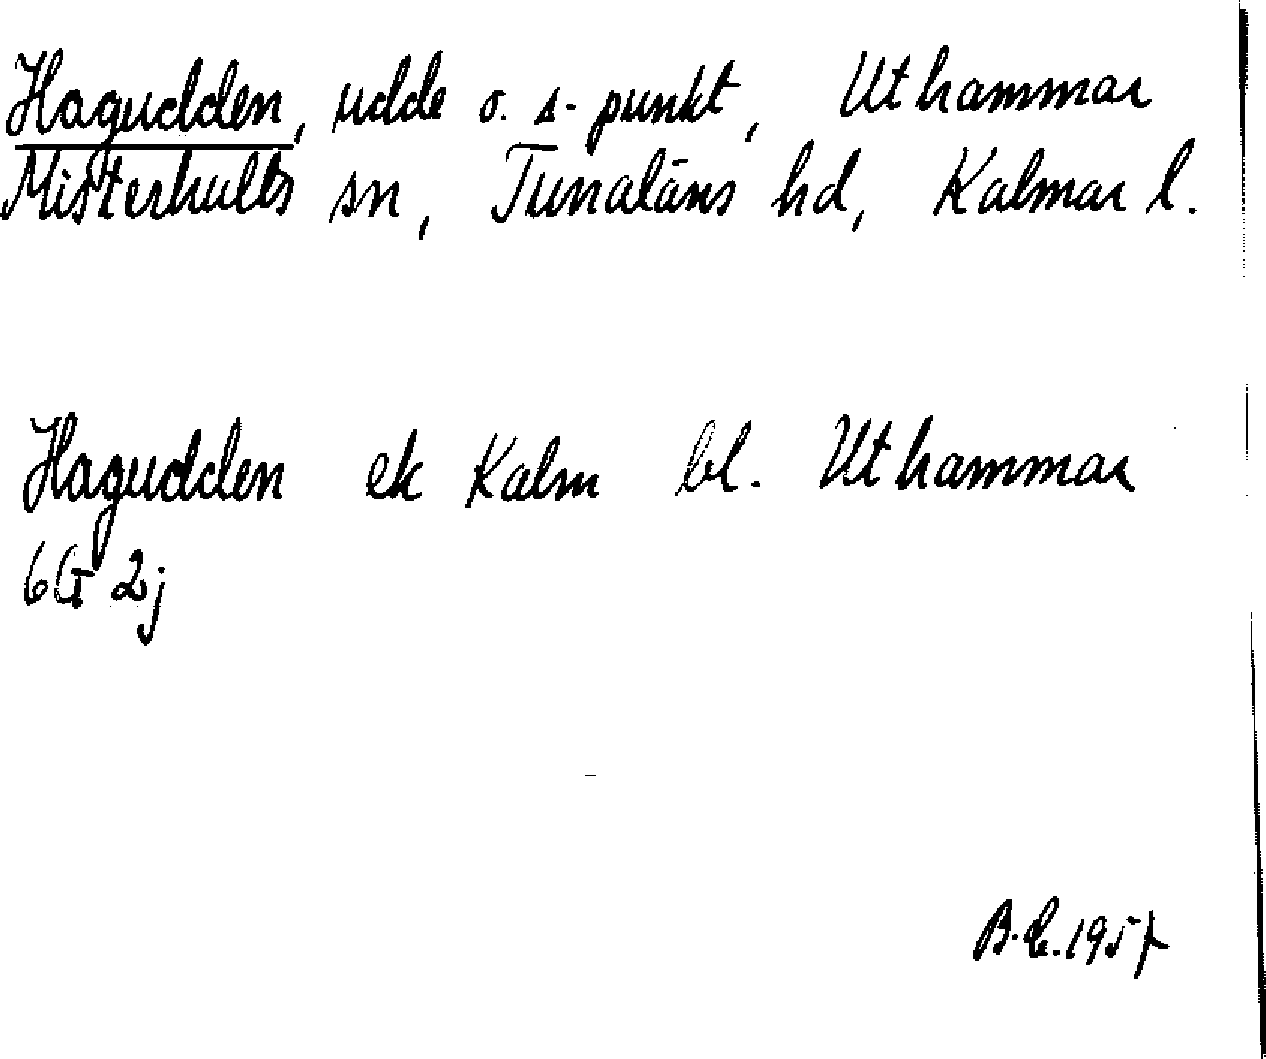 Hagudden, udde o. s-punkt, Uthammar
Misterhults sn, Tunaläns hd, Kalmar l.
Hagudden ek Kalm bl. Uthammar
6G 2j
B.E.1957